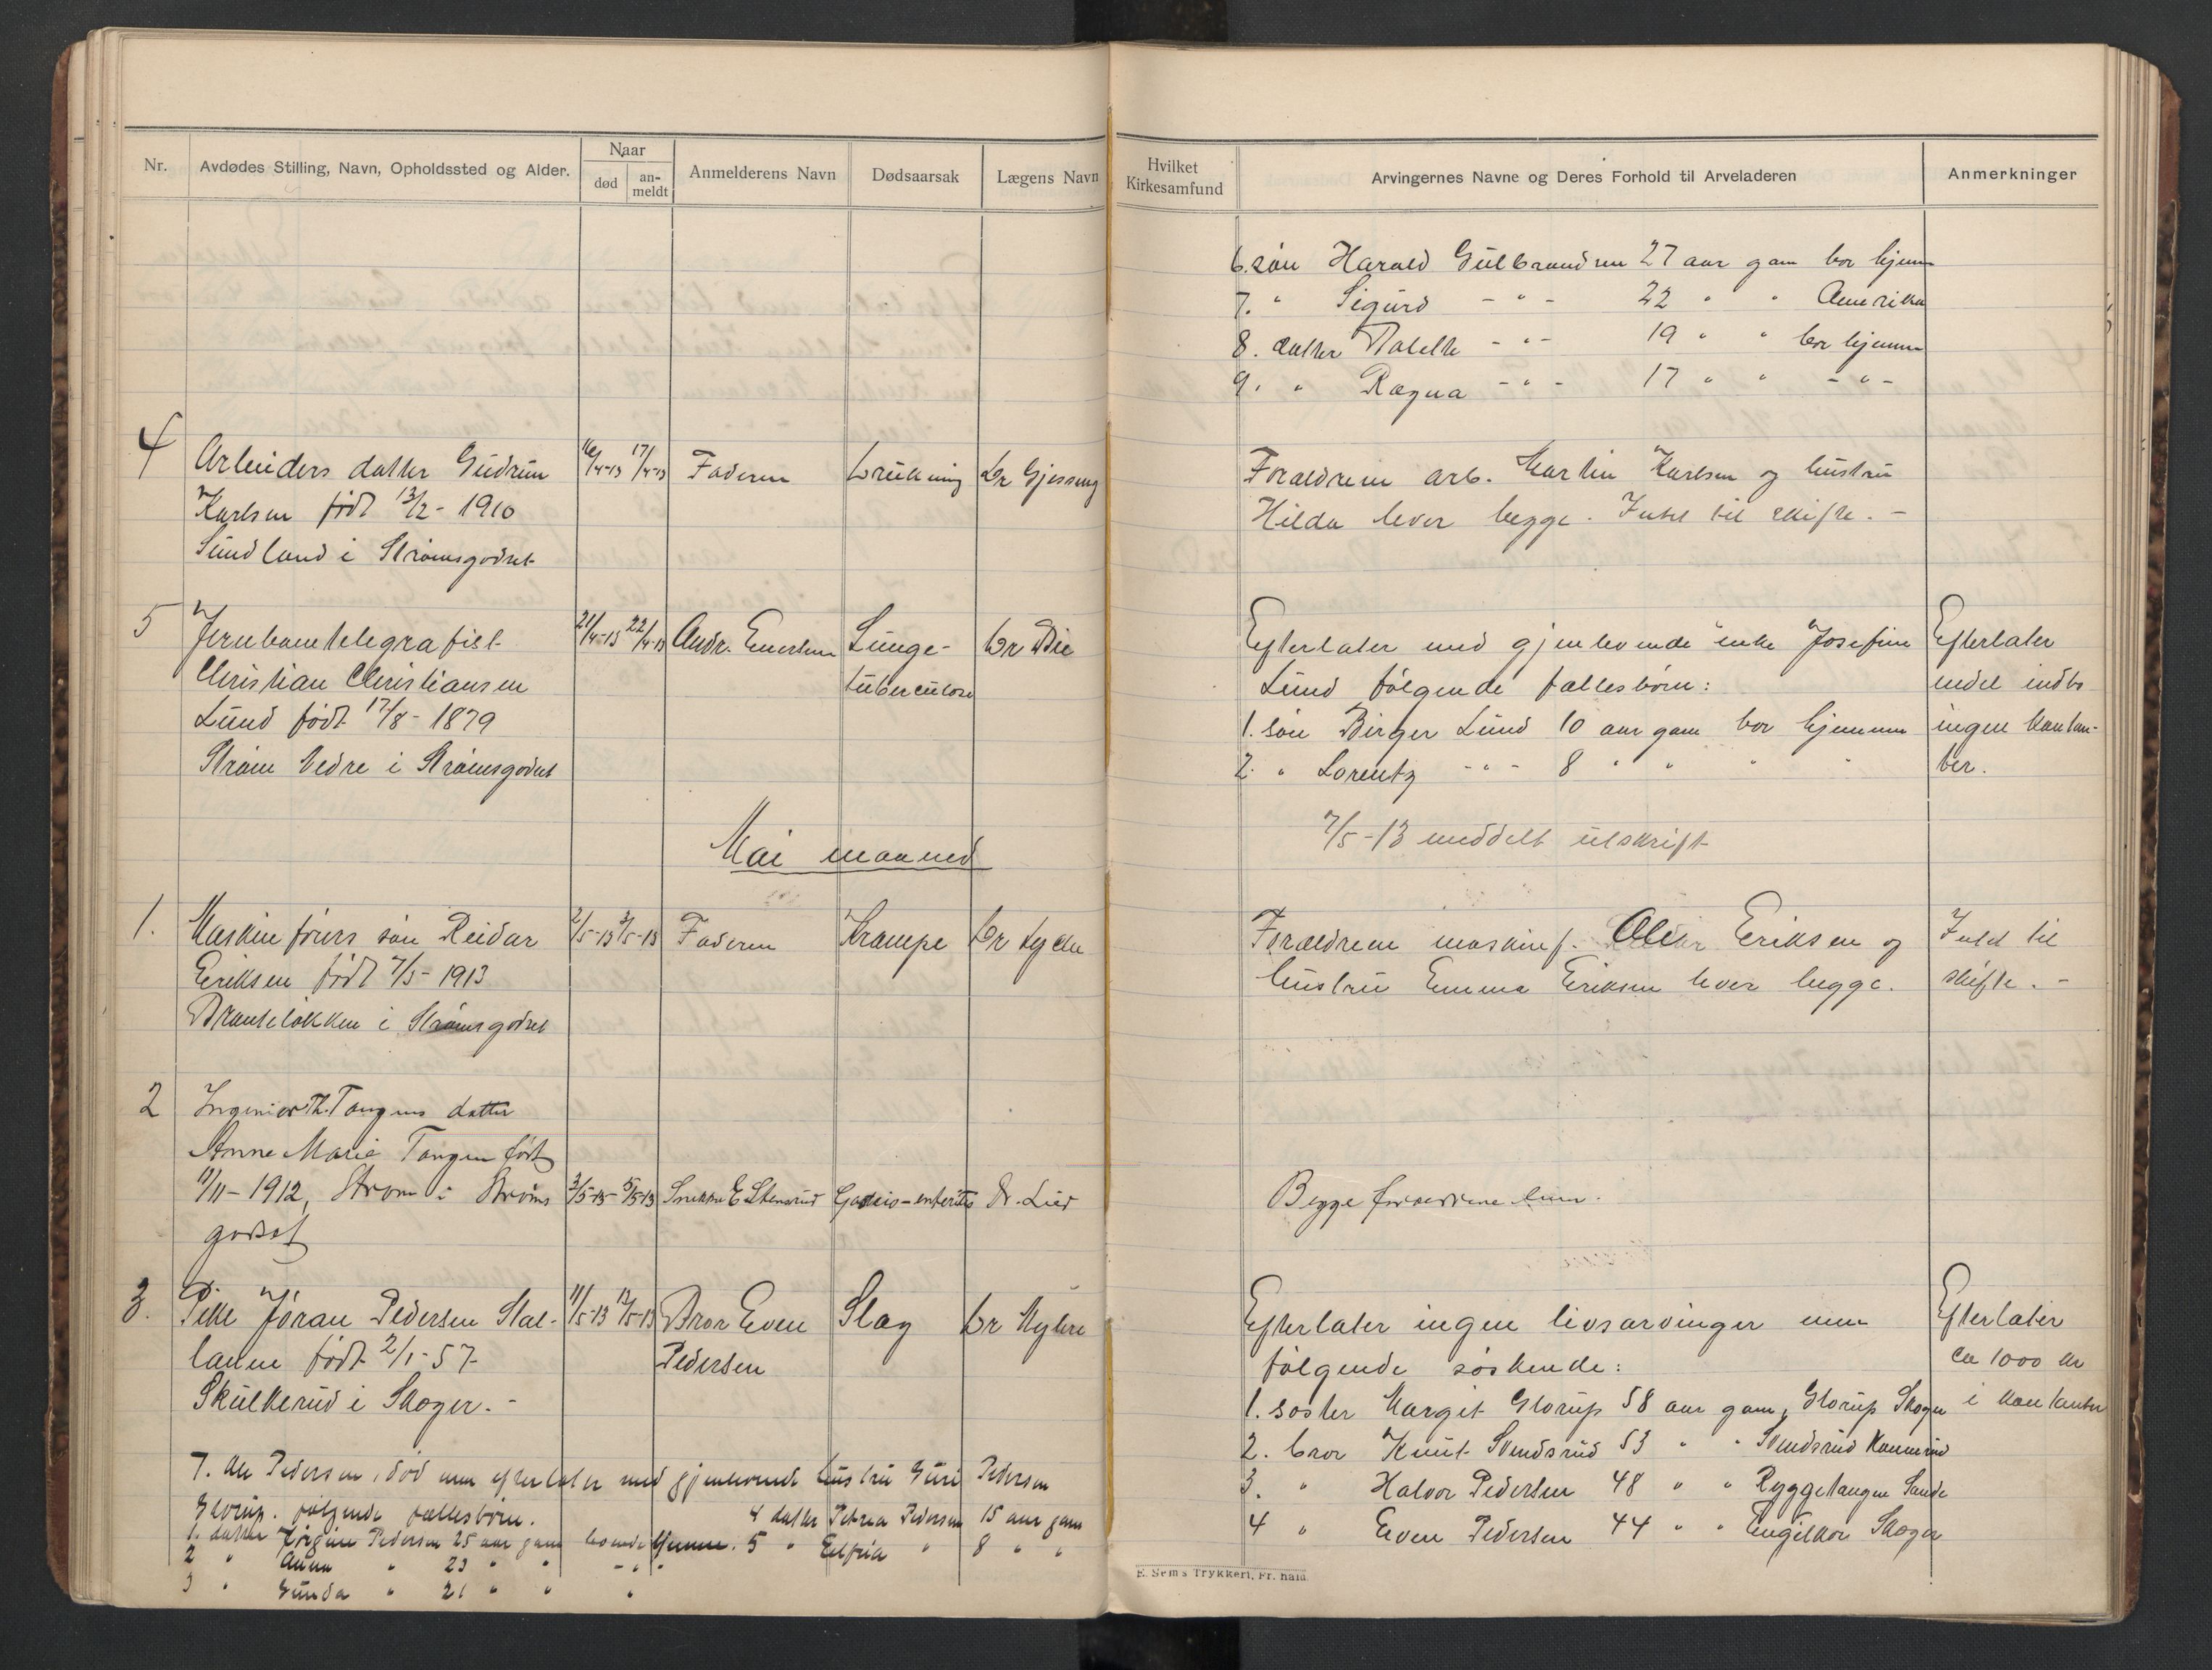 Nr.
Avdødes Stilling, Navn, Opholdssted og Alder.
Naar
død
an-
meldt
Anmelderens Navn
Dødsaarsak
Lægens Navn
4
Arbeiders datter Gudrun
Karlsen født 13/2 - 1910
Sundland i Strømsgodset
16/4-13
17/4-13
Faderen
Drukning
Dr Gjessing
5
Jernbanetelegrafist
Christian Christiansen
Lund født 17/8 - 1879
Strøm Vedre i Strømsgodset
21/4-13
22/4-13
Andr. Evertsen
Lunge-
tuberculose
Dr Bie
Mai maaned
1.
Maskinførers søn Reidar
Eriksen født 7/3 - 1913
Branteløkken i Strømsgodset
2/5-13
3/5-13
Faderen
Krampe
Dr Lyche
2
Ingeniør Th. Tangens datter
Anne Marie Tangen født
11/11 - 1912, Strøm i Strøms
godset
3/5-13
5/5-13
Snekker E Stensrud
-enteritis
Dr. Lied
3.
Pike Jøran Pedersen Stal-
lanne født 2/1 - 57
Skulkerud i Skoger. -
11/5-13
13/5-13
Bror Even
Pedersen
Slag
Dr Myhre
7. Ole Pedersen, død men efterlater med gjenlevende hustru Guri Pedersen
Glorup. følgende fællesbørn.
1. datter Jørgine Pedersen 25 aar gam boende hjemme.
2 " Anna " 23 " " - " -
3 " Gunda " 21 " " "
4 datter Petrea Pedersen 15 aar gam
5 " Elfria " 8 " "
Hvilket
Kirkesamfund
Arvingernes Navne og Deres Forhold til Arveladeren
Anmerkninger
6. søn Harald Gulbrandsen 27 aar gam bor hjem
7. " Sigurd - " - 22 " " Amerika
8. datter - " - 19 " " bor hjemme
9. " Ragna - " - 17 " " - " -
Forældrene arb. Martin Karlsen og hustru
Hilda lever begge. Intet til skifte. -
Efterlater med gjenlevende enke Josefine
Lund følgende fællesbørn:
1. søn Birger Lund 10 aar gam bor hjemme
2. " Lorentz - " - 8 " " " "
Efterlater
endel indbo
ingen kontan-
ter.
7/5-13 meddelt utskrift
Forældrene maskinf. Eriksen og
hustru Emma Eriksen lever begge.
Intet til
skifte. -
Begge forældrene lever.
Efterlater ingen livsarvinger men
følgende søskende:
1. søster Margit Glorup 58 aar gam, Glorup Skoger
2. bror Knut Svendsrud 53 " " Svendsrud Konnerud
3. " Halvor Pedersen 48 " " Ryggetangen Sande
4 " Even Pedersen 44 " " Skoger
Efterlater
ca 1000 kr
i kontanter
E. Sem's Trykkeri, Fr. hald.